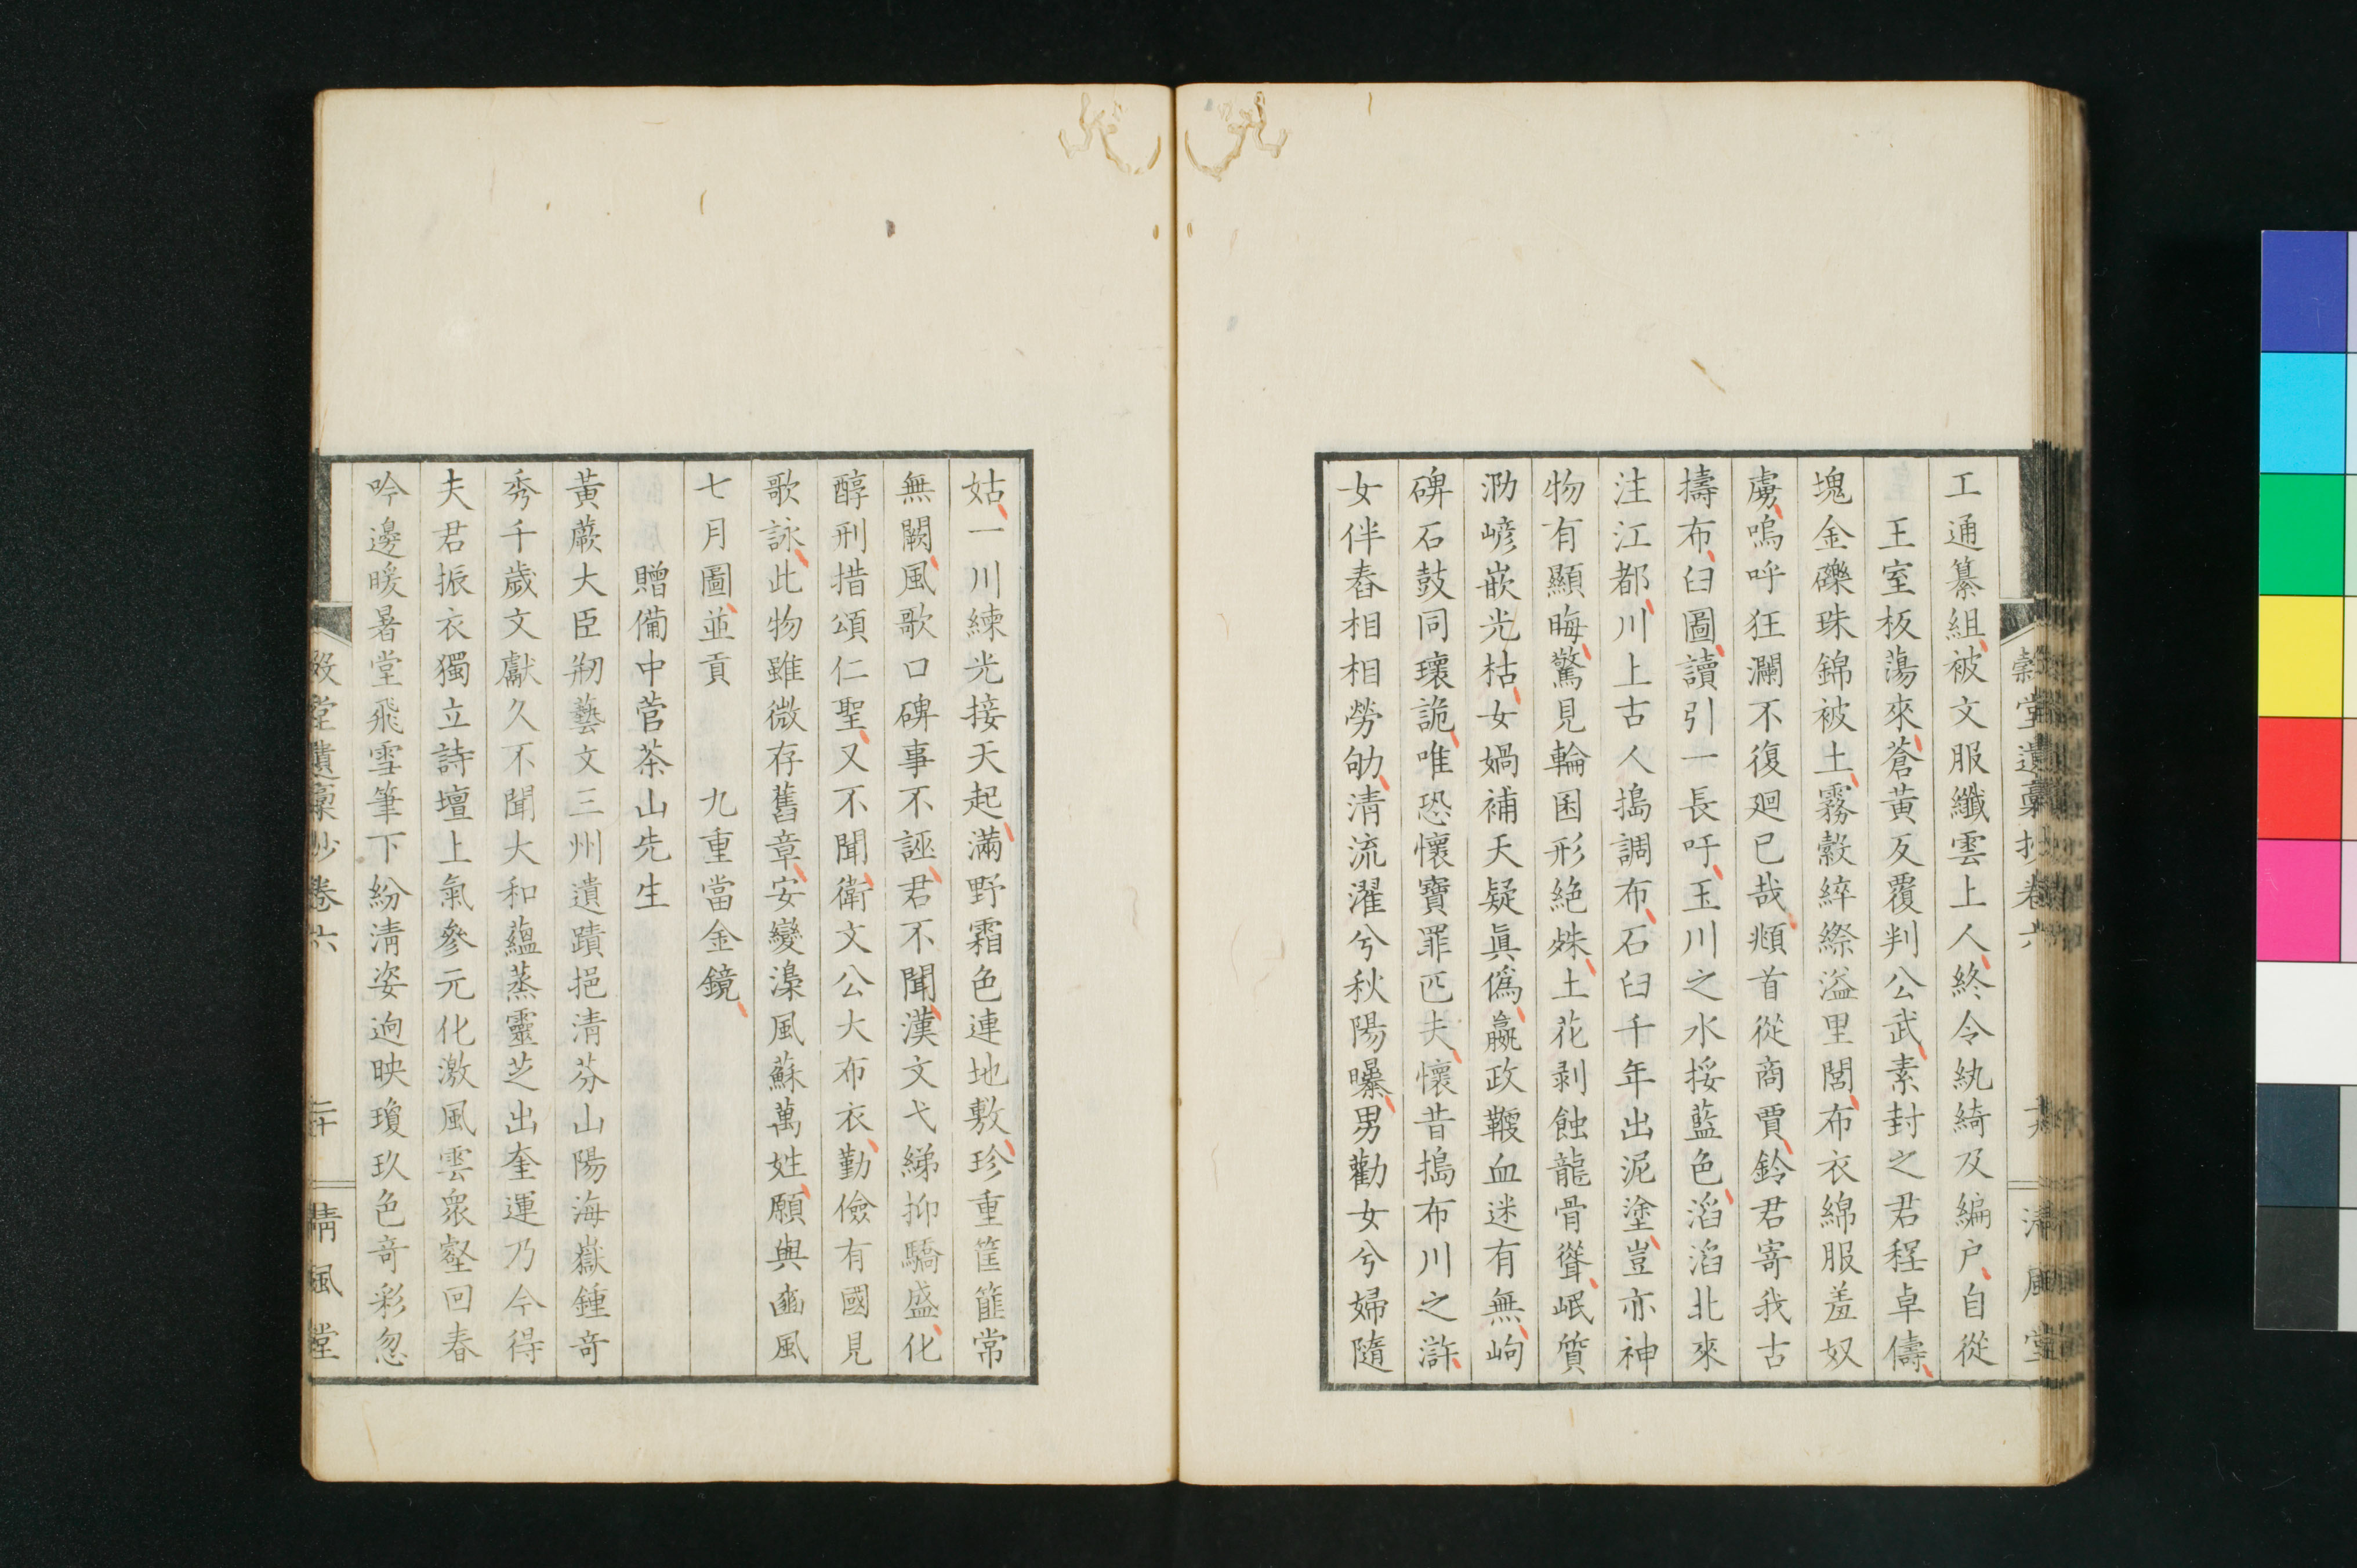 穀堂遺稾抄卷六
清風堂
工通纂組被文服纖雲上人終令紈綺及編戶自從
王室板蕩來蒼黃反覆判公武素封之君程卓儔
塊金礫珠錦被土霧縠綷縩溢里閭布衣綿服羞奴
虜嗚呼狂瀾不復廻已哉頫首從商賈鈴君寄我古
擣布臼圖讀引一長吁玉川之水挼藍色滔滔北來
注江都川上古人搗調布石臼千年出泥塗豈亦神
物有顯晦驚見輪囷形絶姝土花剥蝕龍骨聳岷質
泐嵃嵌光枯女媧補天疑眞僞嬴政鞭血迷有無岣
碑石鼓同瓌詭唯恐懷寶罪匹夫懷昔搗布川之滸
女伴舂相相勞劬清流濯兮秋陽曝男勸女兮婦隨
姑一川練光接天起滿野霜色連地敷珍重筐篚常
無闕風歌口碑事不誣君不聞漢文弋綈抑驕盛化
醇刑措頌仁聖又不聞衛文公大布衣勤儉有國見
歌詠此物雖微存舊章安變澡風蘇萬姓願與豳風
七月圖並貢　九重當金鏡
贈備中菅茶山先生
黃蕨大臣剏藝文三州遺蹟挹清芬山陽海嶽鍾奇
秀千歲文獻久不聞大和蘊蒸靈芝出奎運乃今得
夫君振衣獨立詩壇上氣參元化激風雲衆壑回春
吟邊暖暑堂飛雪筆下紛清姿迥映瓊玖色奇彩忽
穀堂遺稾抄卷六
二十
清風堂